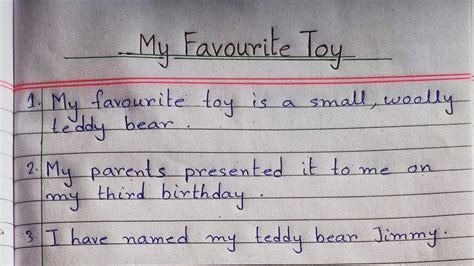 My Favourite Toy
1. My favourite toy is a small, woolly
teddy bear.
2. My parents presented it to me on
my third birthday.
3. I have named my teddy bear Jimmy.